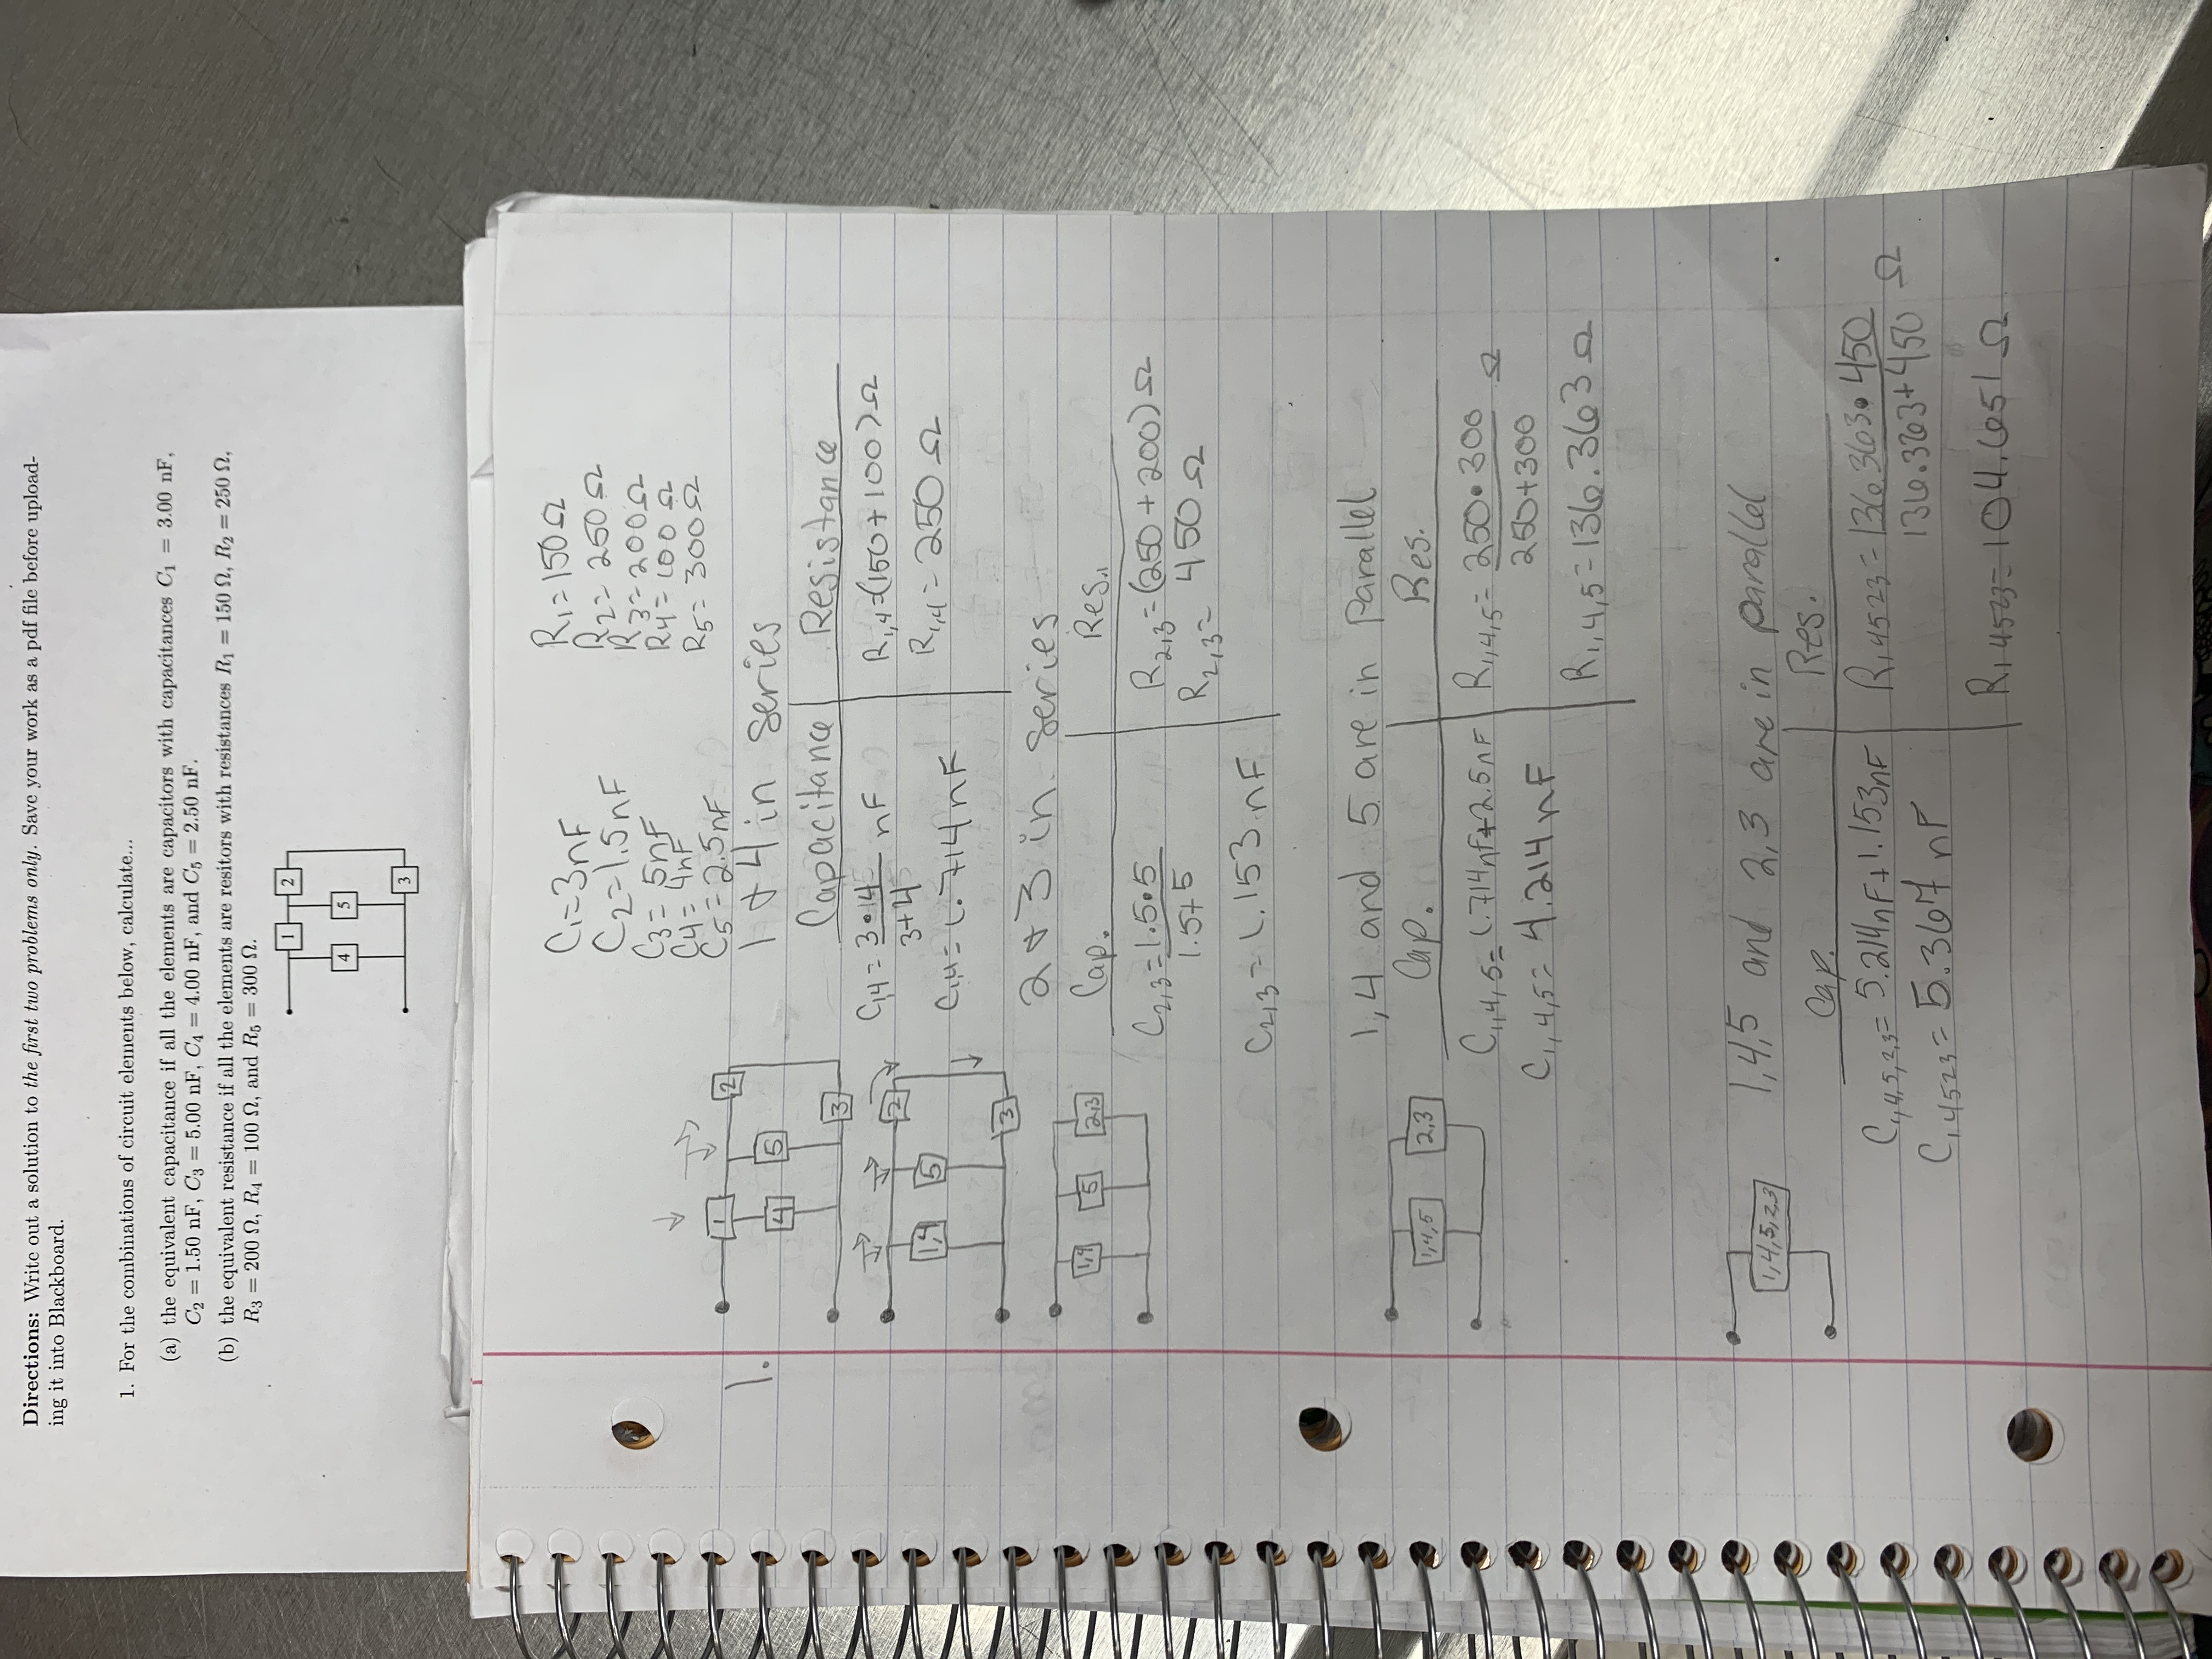 Directions: Write out a solution to the first two problems only. Save your work as a pdf file before upload-
ing it into Blackboard.
1. For the combinations of circuit elements below, calculate...
(a) the equivalent capacitance if all the elements are capacitors with capacitances C₁ = 3.00 nF,
C₂ = 1.50 nF, C₃ = 5.00 nF, C₄ = 4.00 nF, and C₅ = 2.50 nF.
(b) the equivalent resistance if all the elements are resitors with resistances R₁ = 150 Ω, R₂ = 250 Ω,
R₃ = 200 Ω, R₄ = 100 Ω, and R₅ = 300 Ω.
1 2
4 5
3
C₁=3nF R₁=150Ω
C₂=1.5nF R₂=250Ω
C₃=5nF R₃=200Ω
C₄=4nF R₄=100Ω
C₅=2.5nF R₅=300Ω
1.
1 2
4 5
3
1 & 4 in series
Capacitance Resistance
C₁,₄ = 3•4 / 3+4 nF R₁,₄=(150+100)Ω
C₁,₄=1.714nF R₁,₄=250Ω
1,4 5 2
3
2 & 3 in series
Cap. Res.
C₂,₃=1.5•5 / 1.5+5 R₂,₃=(250+200)Ω
R₂,₃= 450Ω
C₂,₃=1.153 nF
1,4 5 2,3
1,4 and 5 are in parallel
Cap. Res.
C₁,₄,₅=1.714nF+2.5nF R₁,₄,₅= 250•300 / 250+300 Ω
C₁,₄,₅= 4.214nF R₁,₄,₅=136.363Ω
1,4,5 2,3
1,4,5 and 2,3 are in parallel
Cap. Res.
C₁,₄,₅,₂,₃= 5.214nF+1.153nF R₁₄₅₂₃= 136.363•450 / 136.363+450 Ω
C₁₄₅₂₃= 5.367 nF
R₁₄₅₂₃=104.651Ω
1,4,5,2,3